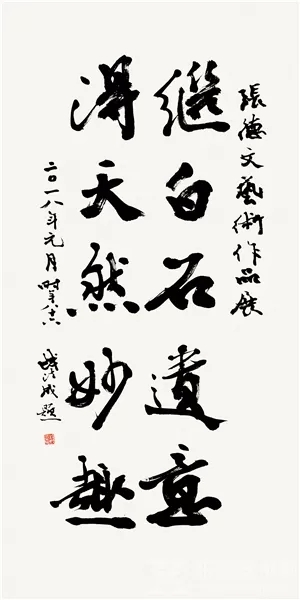 張德文藝術作品展
繼白石遺意
得天然妙趣
二〇一八年元月時年
成題